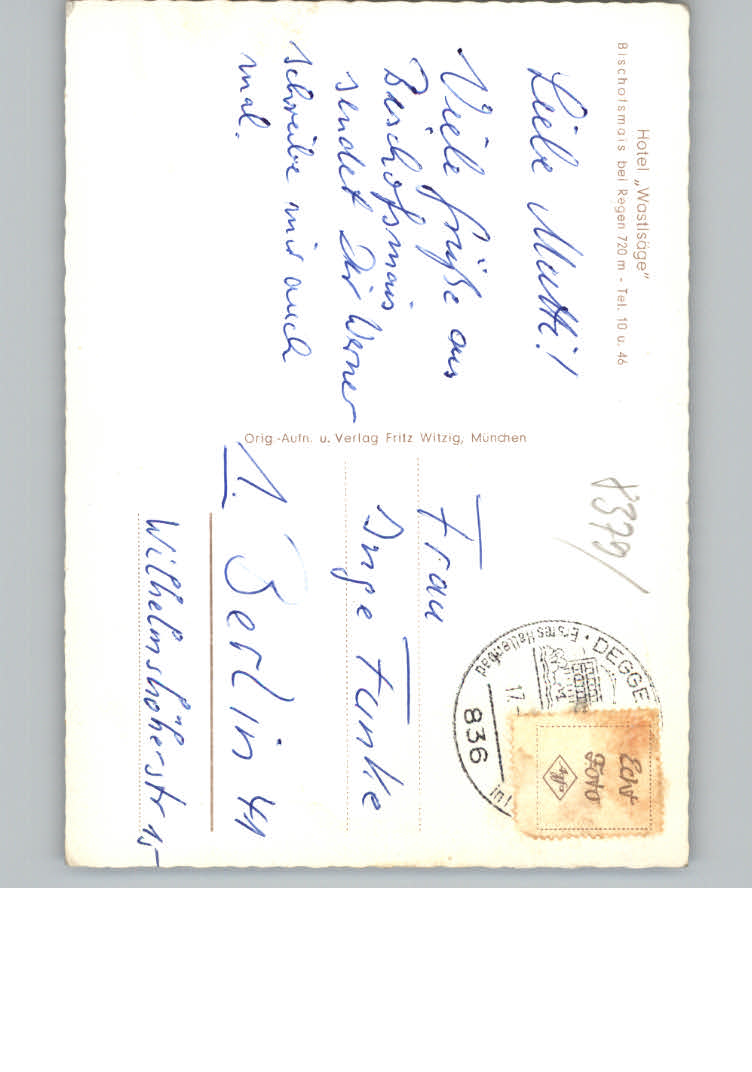 Hotel „Wastlsäge“
Bischofsmais bei Regen 720 m - Tel. 10 u. 46
Liebe Mutti!
Viele Grüße aus
Bischofsmais
sendet Dir Werner
schreibe mir auch
mal.
Orig.-Aufn. u. Verlag Fritz Witzig, München
8379/
DEGGE
Erstes Hallenbad
17.-
836
Echt
Foto
Agfa
Frau
Inge Funke
1. Berlin 41
Wilhelmshöherstr 15